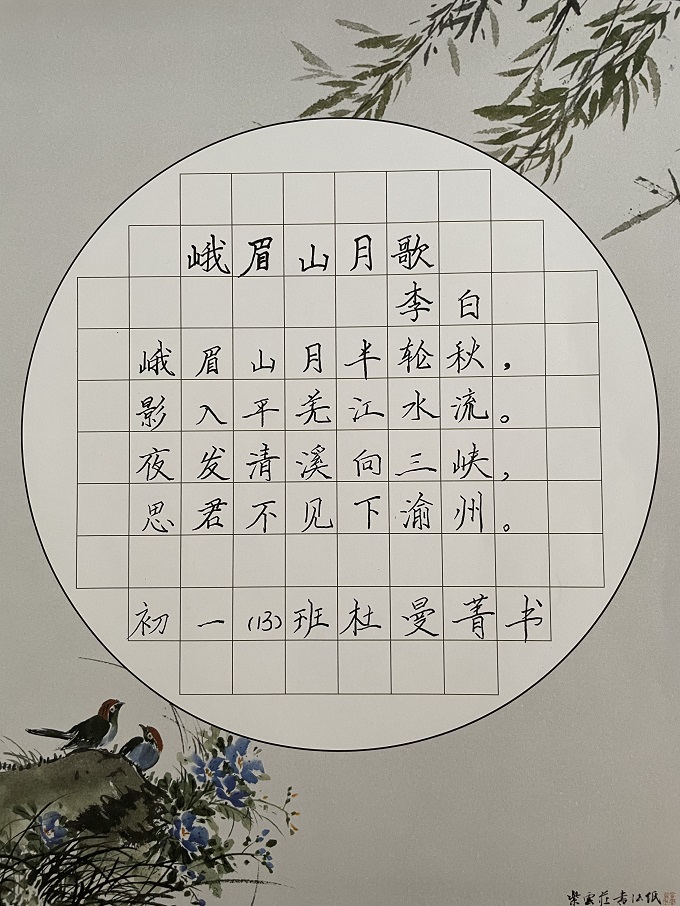 峨眉山月歌
李白
峨眉山月半轮秋，
影入平羌江水流。
夜发清溪向三峡，
思君不见下渝州。
初一(13)班杜曼菁书
紫云庄书法纸